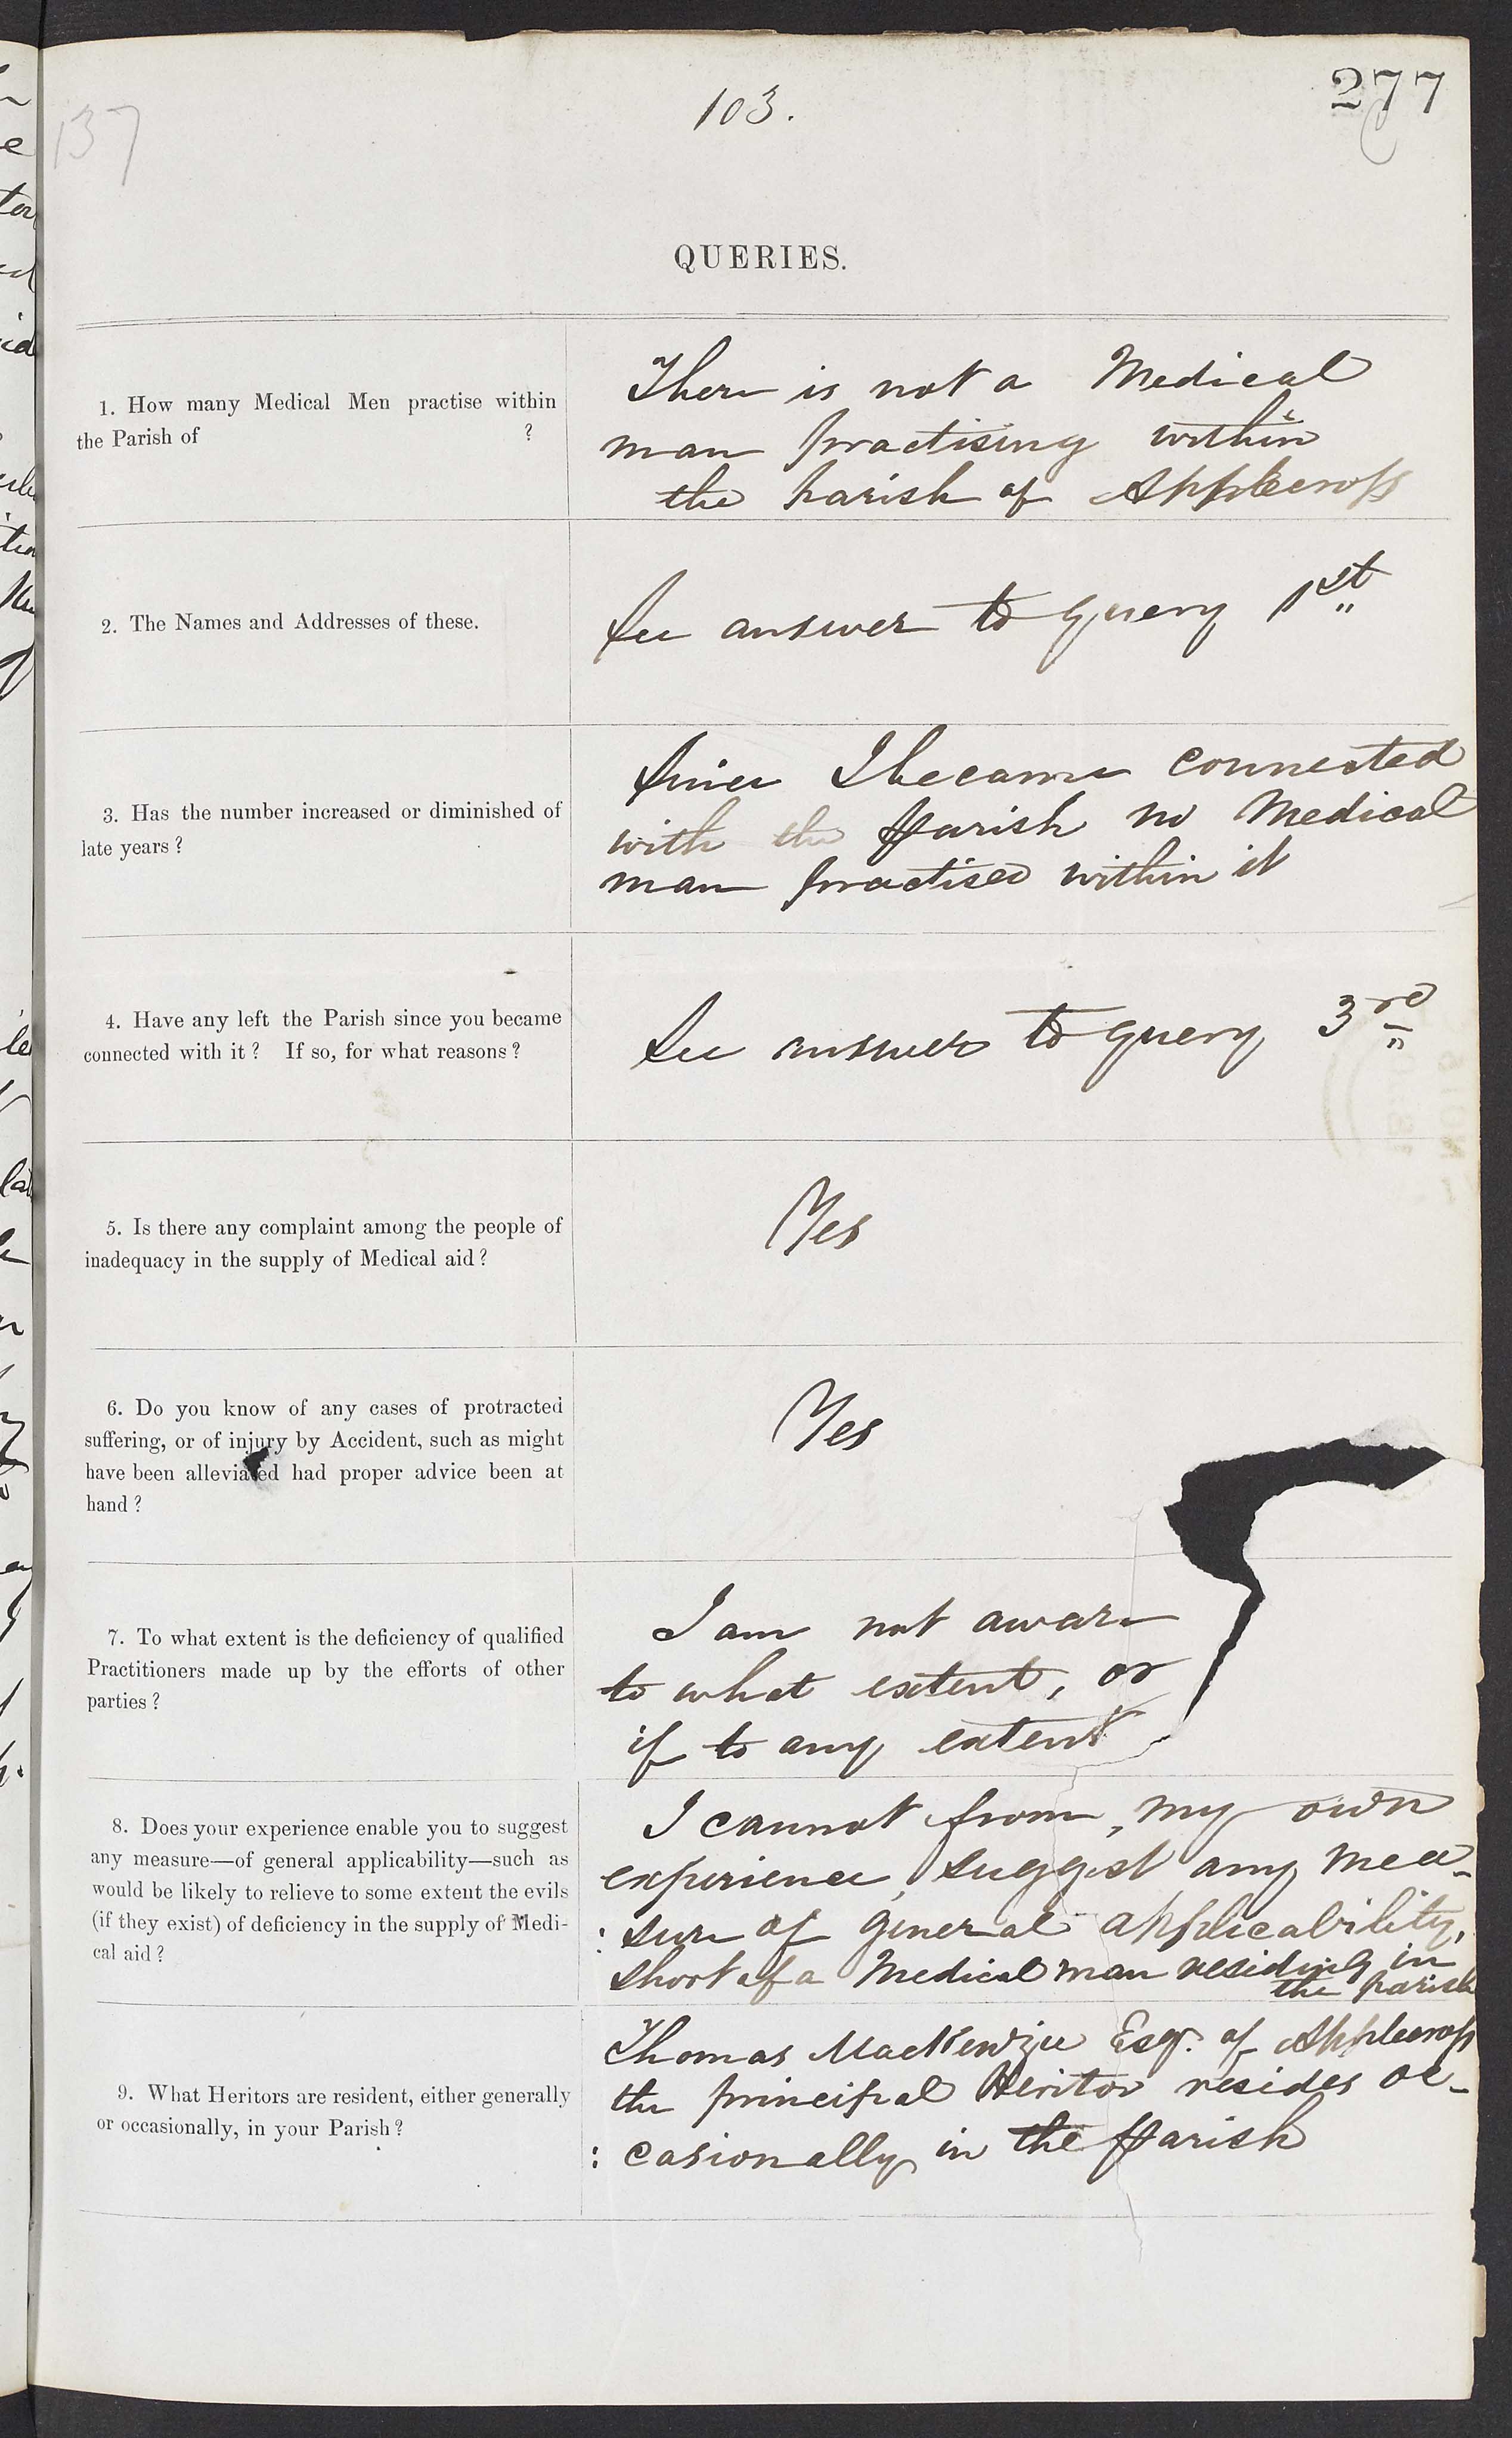 137
103.
277
QUERIES.
1. How many Medical Men practise within
the Parish of ?
There is not a Medical
man practising within
the parish of Applecross
2. The Names and Addresses of these.
See answer to query 1st
3. Has the number increased or diminished of
late years?
Since I became connected
with the Parish no Medical
man practised within it
4. Have any left the Parish since you became
connected with it? If so, for what reasons?
See answer to query 3rd
5. Is there any complaint among the people of
inadequacy in the supply of Medical aid?
Yes
6. Do you know of any cases of protracted
suffering, or of injury by Accident, such as might
have been alleviated had proper advice been at
hand?
Yes
7. To what extent is the deficiency of qualified
Practitioners made up by the efforts of other
parties?
I am not aware
to what extent, or
if to any extent
8. Does your experience enable you to suggest
any measure—of general applicability—such as
would be likely to relieve to some extent the evils
(if they exist) of deficiency in the supply of Medi-
cal aid?
I cannot from, my own
experience, suggest any mea-
: sure of general applicability,
short of a Medical man residing in
the parish
9. What Heritors are resident, either generally
or occasionally, in your Parish?
Thomas MacKenzie Esqr. of Applecross
the principal Heritor resides oc-
: casionally in the Parish